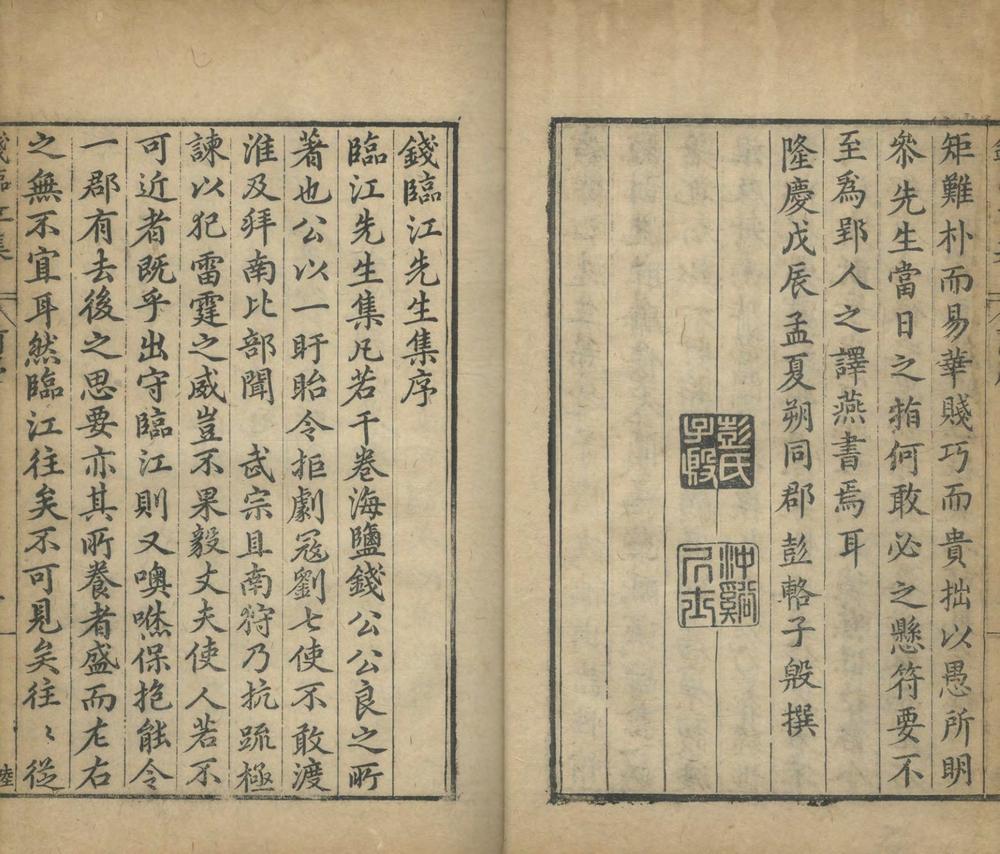 矩難朴而易華賤巧而貴拙以愚所明
叅先生當日之指何敢必之懸符要不
至爲郢人之譯燕書焉耳
隆慶戊辰孟夏朔同郡彭輅子殷撰
彭氏子殷
沖谿
錢臨江先生集序
臨江先生集凡若干卷海鹽錢公公良之所
著也公以一盱眙令拒劇冦劉七使不敢渡
淮及拜南比部聞　武宗且南狩乃抗疏極
諫以犯雷霆之威豈不果毅丈夫使人若不
可近者既乎出守臨江則又噢喣保抱能令
一郡有去後之思要亦其所養者盛而左右
之無不宜耳然臨江往矣不可見矣往〻從